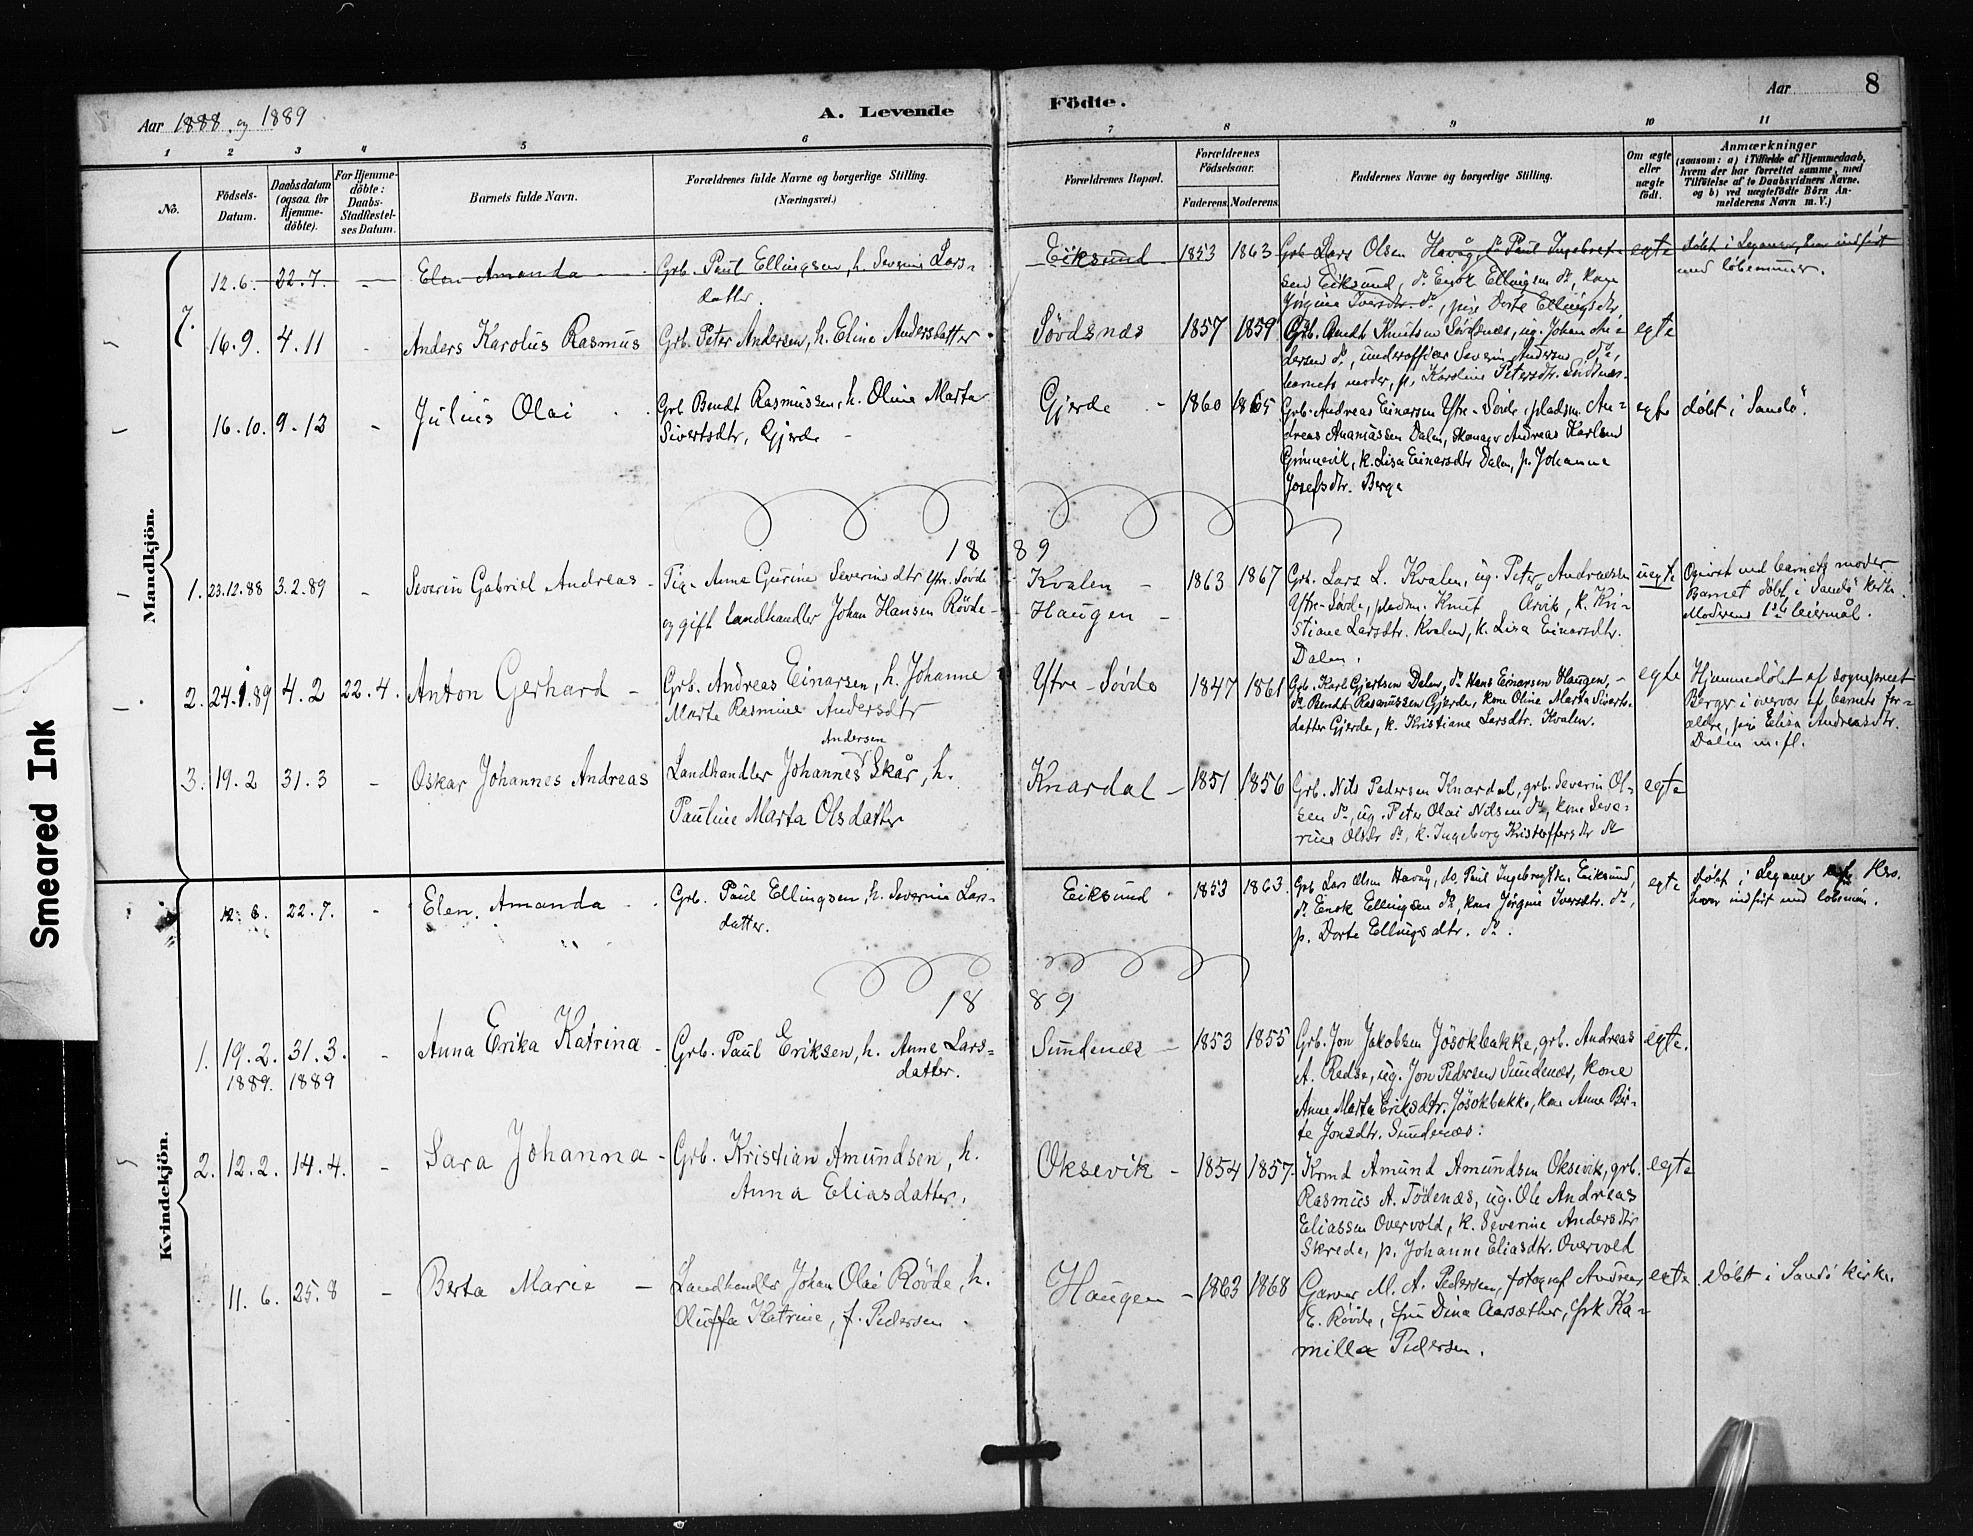 Smeared Ink
Aar 1888 og 1889
A. Levende
Födte.
Aar
8
1 2 3 4 5 6 7 8 9 10 11
No.
Födsels-Datum.
Daabsdatum (ogsaa for Hjemme-döbte).
For Hjemme-döbte: Daabs-Stadfæstel-ses Datum.
Barnets fulde Navn.
Forældrenes fulde Navne og borgerlige Stilling.
(Næringsvei.)
Forældrenes Bopæl.
Forældrenes Födselsaar.
Faderens. Moderens.
Faddernes Navne og borgerlige Stilling.
Om ægte eller uægte födt.
Anmærkninger
(saasom: a) i Tilfælde af Hjemmedaab,
hvem der har forrettet samme, med
Tilföielse af to Daabsvidners Navne,
og b) ved uægtefödte Börn An-
melderens Navn m. V.)
Mandkjön.
12.6. 22.7. - Elen Amanda - Grb. Paul Ellingsen, h. Severine Lars=
datter.
Eiksund 1853 1863 Grb Lars Olsen Havåg, do Paul Ingebrigt-
sen Eiksund, do Enok Ellingsen do, kone
Jørgine Iversdtr. do, pige Dorte Ellingsdtr.
egte døbt i Leganger, her indført
med løbenummer.
7. 16.9. 4.11 - Anders Karolus Rasmus
Grb. Peter Andersen, h. Eline Andersdatter
Sövdsnæs 1857 1859 Grb. Bendt Knutsen Sövdsnæs, ug. Johan An=
dersen do, underofficer Severin Andersen do,
barnets moder, p. Karoline Petersdtr. Sövdsnæs.
egte
16.10. 9.12 - Julius Olai
Grb Bendt Rasmussen, h. Oline Marta
Sivertsdtr, Gjerde -
Gjerde - 1860 1865 Grb. Andreas Einarsen Ytre-Sövde, pladsm. An=
dreas Ananiassen Dalen, skomager Andreas Karlsen
Grimervik, k. Lisa Einarsdtr Dalen, p. Johanne
Josefsdtr. Berge
egte døbt i Sandö.
18 89
1. 23.12.88 3.2.89 - Severin Gabriel Andreas -
Pig. Anne Gurine Severinsdtr Ytre-Sövde
og gift Landhandler Johan Hansen Rövde -
Kvalen -
Haugen -
1863 1867 Grb. Lars L. Kvalen, ug. Peter Andreassen
Ytre-Sövde, pladsm. Knut Arvik, k. Kri-
stiane Larsdtr. Kvalen, k. Lisa Einarsdtr.
Dalen.
uegte Opgivet ved barnets moder
Barnet døbt i Sandö kirke.
Moderens 1ste leiermål.
2. 24.1.89 4.2 22.4. Anton Gerhard -
Grb. Andreas Einarsen, h. Johanne
Marte Rasmine Andersdtr
Ytre-Sövde 1847 1861 Grb. Karl Gjertsen Dalen, do Hans Einarsen Haugen, -
do Bendt Rasmussen Gjerde, kone Oline Marta Siverts-
datter Gjerde, k. Kristiane Larsdtr. Kvalen.
egte Hjemmedøbt af sogneprest
Berger i overvær af barnets for=
ældre, pige Elisa Andreasdtr.
Dalen m. fl.
3. 19.2 31.3 - Oskar Johannes Andreas
Andersen
Landhandler Johannes Skår, h.
Pauline Marta Olsdatter
Knardal - 1851 1856 Grb. Nils Pedersen Knardal, grb. Severin Ol-
sen do, ug. Peter Olai Nilsen do, kone Seve-
rine Olsdtr do, k. Ingeborg Kristoffersdtr do
egte
Kvindekjön.
12.6. 22.7. - Elen Amanda
Grb. Paul Ellingsen, h. Severine Lars-
datter.
Eiksund 1853 1863. Grb Lars Olsen Havåg, do. Paul Ingebrigtsen Eiksund,
do Enok Ellingsen do, kone Jørgine Iversdtr. do,
p. Dorte Ellingsdtr. do.
egte døbt i Leganger
hvor indført med løbenum.
18 89
1. 19.2. 31.3. - Anna Erika Katrina -
1889. 1889
Grb. Paul Eriksen, h. Anne Lars=
datter.
Sundenæs - 1853 1855 Grb. Jon Jakobsen Jösokbakke, grb. Andreas
A. Redse, ug. Jon Pedersen Sundenæs, kone
Anne Marta Eriksdtr. Jösokbakke, kone Anne Ber-
te Jonsdtr. Sundenæs.
egte.
2. 12.2. 14.4. - Sara Johanna -
Grb. Kristian Amundsen, h.
Anna Eliasdatter.
Oksevik - 1854 1857. Kvmd Amund Amundsen Oksevik, grb.
Rasmus A. Tödenæs, ug. Ole Andreas
Eliassen Overvold, k. Severine Andersdtr
Skrede, p. Johanne Eliasdtr. Overvold
egte
11.6. 25.8 - Berta Marie -
Landhandler Johan Olai Rövde, h.
Oluffa Katrine, f. Pedersen.
Haugen - 1863 1868 Garver M. A. Pedersen, fotograf Andreas
E. Rövde, fru Dina Aarsæther, frk Ka-
milla Pedersen.
egte. Døbt i Sandö kirke.